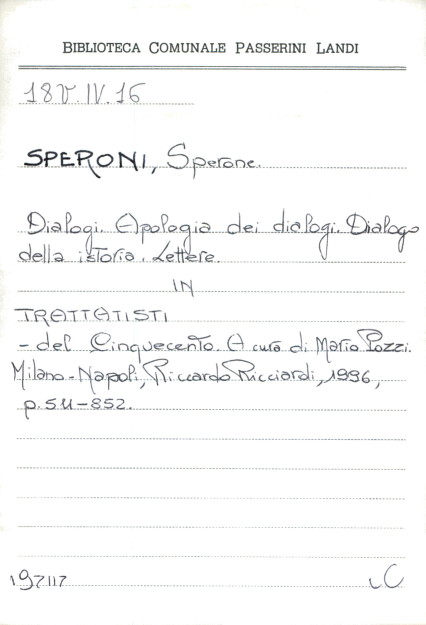 BIBLIOTECA COMUNALE PASSERINI LANDI
18V.IV.16
SPERONI, Sperone.
Dialogi. Apologia dei dialogi. Dialogo
della istoria. Lettere.
IN
TRATTATISTI
- del Cinquecento. A cura di Mario Pozzi.
Milano-Napoli, Riccardo Ricciardi, 1996,
p. 511-852.
197117